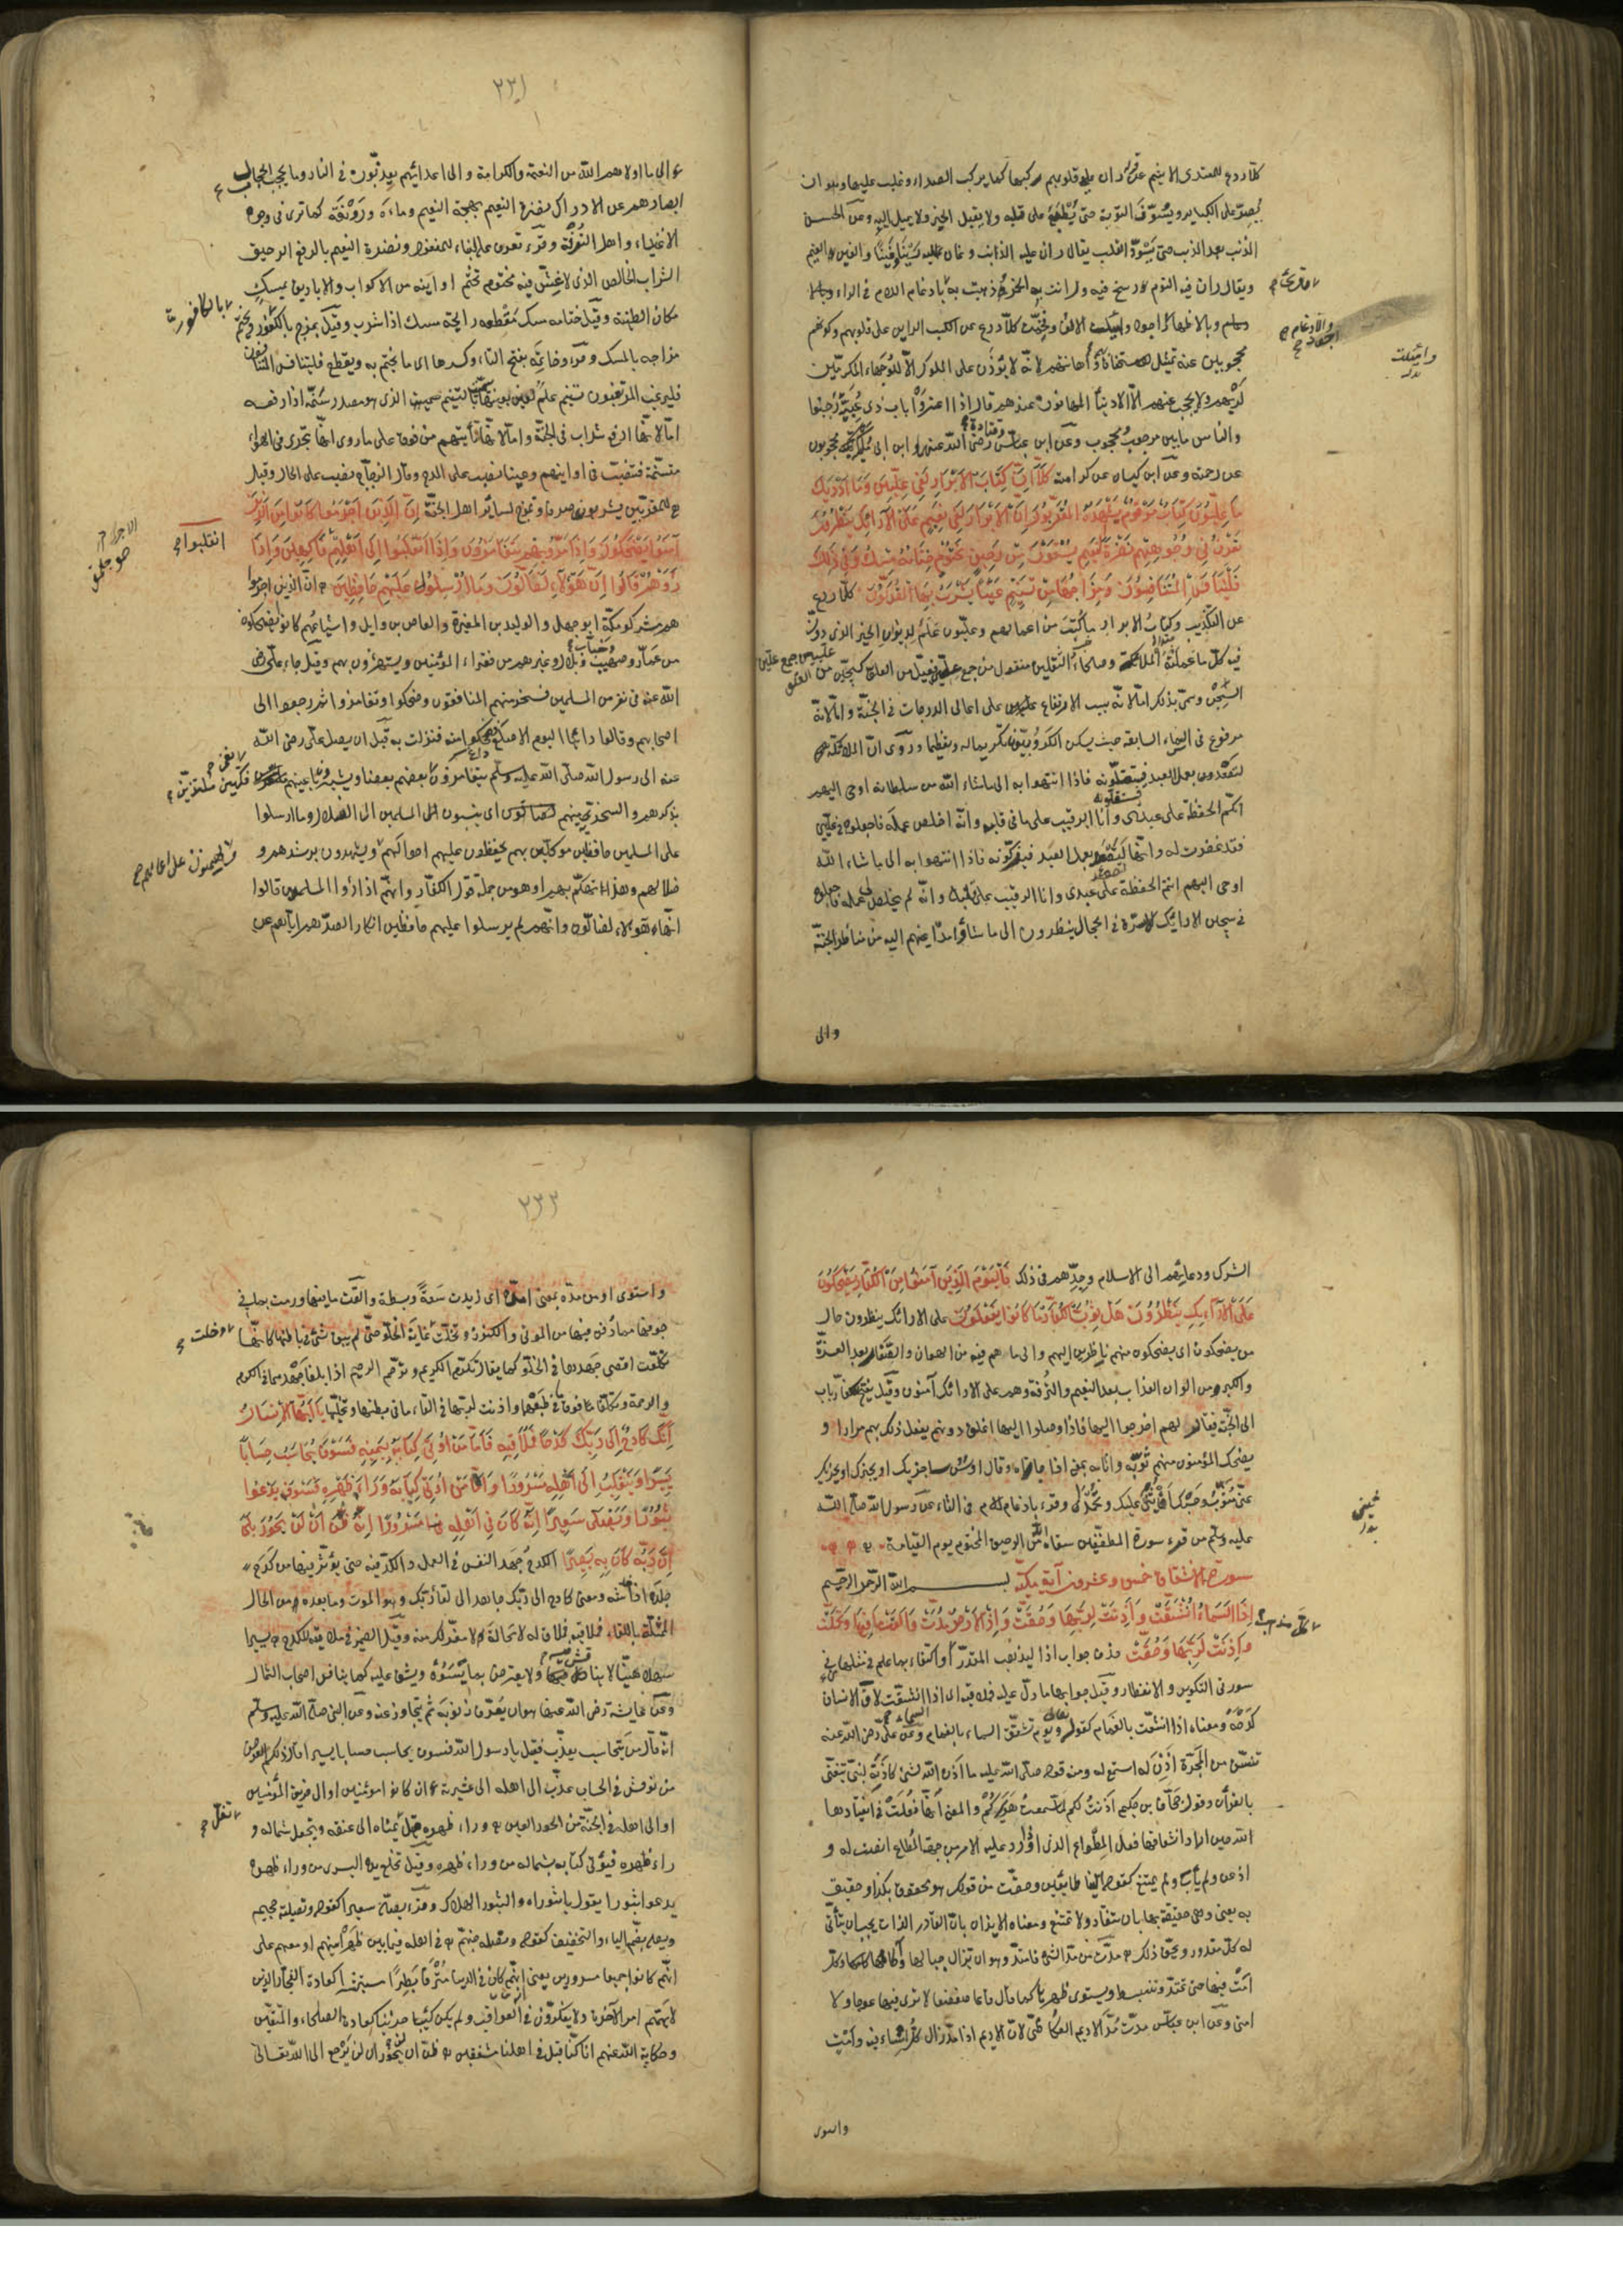 كلا ردع للمعتدى الاثيم عن قوله ران على قلوبهم ركبها كما يركب الصداء وغلب عليها وهو ان
يصر على الكباير ويسوف التوبة حتى يطبع على قلبه ولا يقبل الخير ولا يميل اليه وعن الحسن
الذنب بعد الذنب حتى يسود القلب يقال ران عليه الذنب وغان عليه رينا وغينا والغين الغيم
ويقال ران فيه النوم رسخ فيه ورانت به الخمر ذهبت به بادغام اللام فى الراء
وبالاظهار اجود واميلت الالف وفخمت كلا ردع عن الكسب الراين على قلوبهم وكونهم
محجوبين عنه تمثيل للاستخفاف بهم واهانتهم لانه لا يؤذن على الملوك الا للوجهاء المكرمين
لديهم ولا يحجب عنهم الا الادنياء المهانون عندهم قال اذا اعتروا باب ذى عبية رجبوا
والناس ما بين مرجوب ومحجوب وعن ابن عباس وقتادة رضى الله عنهم وابن ابى مليكة محجوبون
عن رحمته وعن ابن كيسان عن كرامته كلا ان كتاب الابرار لفى عليين وما ادريك
ما عليون كتاب مرقوم يشهده المقربون ان الابرار لفى نعيم على الارائك ينظرون
تعرف فى وجوههم نضرة النعيم يسقون من رحيق مختوم ختامه مسك وفى ذلك
فليتنافس المتنافسون ومزاجه من تسنيم عينا يشرب بها المقربون كلا ردع
عن التكذيب وكتاب الابرار ما كتب من اعمالهم وعليون علم لديوان الخير الذى دون
فيه كل ما عملته الملائكة وصلحاء الثقلين منقول من جمع على فعيل من العلو كسجين من
السجن وسمى بذلك اما لانه سبب الارتفاع على اعالى الدرجات فى الجنة واما لانه
مرفوع فى السماء السابعة حيث يسكن الكروبيون تكريما له وتعظيما وروى ان الملائكة
لتصعد بعمل العبد فيستقلونه فاذا انتهوا به الى ما شاء الله من سلطانه اوحى اليهم
انكم الحفظة على عبدى وانا الرقيب على ما فى قلبه وانه اخلص عمله فاجعلوه فى عليين
فقد غفرت له وانها لتصعد بعمل العبد فيزكونه فاذا انتهوا به الى ما شاء الله
اوحى اليهم انتم الحفظة على عبدى وانا الرقيب على قلبه وانه لم يخلص لى عمله فاجعلوه
فى سجين الارائك الاسرة فى الحجال ينظرون الى ما شاؤا مد اعينهم اليه من مناظر الجنة
والى
واميلت
٢٣١
والى ما اولاهم الله من النعمة والكرامة والى اعدائهم يعذبون فى النار وما يحجب الحجال
ابصارهم عن الادراك نضرة النعيم بهجة النعيم وماءه ورونقه كما ترى فى وجوه
الاغنياء واهل الترفة وقرء تعرف على البناء للمفعول ونضرة النعيم بالرفع الرحيق
الشراب الخالص الذى لا غش فيه مختوم تختم اوانيه من الاكواب والاباريق بمسك
مكان الطينة وقيل ختامه مسك مقطعه رايحة مسك اذا شرب وقيل يمزج بالكافور ويختم
مزاجه بالمسك وقرء خاتمه بفتح التاء وكسرها اى ما يختم به ويقطع فليتنافس المتنافسون
فليرغب المرتغبون تسنيم علم لعين بعينها سميت بالتسنيم الذى هو مصدر سنمه اذا رفعه
اما لانها ارفع شراب فى الجنة واما لانها تأتيهم من فوق على ما روى انها تجرى فى الهواء
متسنمة فتنصب فى اوانيهم وعينا نصب على المدح وقال الزجاج نصب على الحال وقيل
هى للمقربين يشربونها صرفا وتمزج لسائر اهل الجنة ان الذين اجرموا كانوا من الذين
آمنوا يضحكون واذا مروا بهم يتغامزون واذا انقلبوا الى اهلهم فاكهين واذا
رأوهم قالوا ان هؤلاء لضالون وما ارسلوا عليهم حافظين ان الذين اجرموا
هم مشركو مكة ابو جهل والوليد بن المغيرة والعاص بن وايل واشياعهم كانوا يضحكون
من عمار وصهيب وخباب وبلال وغيرهم من فقراء المؤمنين ويستهزؤن بهم وقيل جاء على رضى
الله عنه فى نفر من المسلمين فسخر منهم المنافقون وضحكوا وتغامزوا ثم رجعوا الى
اصحابهم وقالوا رأينا اليوم الاصلع فضحكوا منه فنزلت به قبل ان يصل على رضى الله
عنه الى رسول الله صلى الله عليه وسلم يتغامزون يغمز بعضهم بعضا ويشيرون باعينهم فكهين متلذذين
بذكرهم والسخرية منهم لضالون اى ينسبون المسلمين الى الضلال وما ارسلوا
على المسلمين حافظين موكلين بهم يحفظون عليهم احوالهم ويشهدون برشدهم و
ضلالهم وهذا تهكم بهم او هو من جملة قول الكفار وانهم اذا رأوا المسلمين قالوا
ان هؤلاء لضالون وانهم لم يرسلوا عليهم حافظين انكارا لصدهم اياهم عن
انقلبوا
بالكافور
الشرك ودعائهم الى الاسلام وجدهم فى ذلك فاليوم الذين آمنوا من الكفار يضحكون
على الارائك ينظرون هل ثوب الكفار ما كانوا يفعلون على الارائك ينظرون حال
من يضحكون اى يضحكون منهم ناظرين اليهم والى ما هم فيه من الهوان والصغار بعد العزة
والكبر ومن الوان العذاب بعد النعيم والترفة وهم على الارائك آمنون وقيل يفتح للكفار باب
الى الجنة فيقال لهم اخرجوا اليها فاذا وصلوا اليها اغلق دونهم يفعل ذلك بهم مرارا و
يضحك المؤمنون منهم ثوبه واثابه بمعنى اذا جازاه وقال اوس ساجزيك او يجزيك
عنى مثوب وحسبك ان يثنى عليك وتحمدى وقرء بادغام اللام فى الثاء عن رسول الله صلى الله
عليه وسلم من قرء سورة المطففين سقاه الله من الرحيق المختوم يوم القيامة
سورة الانشقاق خمس وعشرون آية مكية بسم الله الرحمن الرحيم
اذا السماء انشقت واذنت لربها وحقت واذا الارض مدت والقت ما فيها وتخلت
واذنت لربها وحقت حذف جواب اذا ليذهب المقدر او اكتفاء بما علم فى مثلها من
سورتى التكوير والانفطار وقيل جوابها ما دل عليه فملاقيه اى اذا انشقت السماء لاقى الانسان
كدحه ومعناه اذا انشقت بالغمام كقوله تعالى ويوم تشقق السماء بالغمام وعن على رضى الله عنه
تنشق من المجرة اذن له استمع له ومنه قوله صلى الله عليه ما اذن الله لشئ كاذنه لنبى يتغنى
بالقرآن وقول جحاف بن حكيم اذنت لكم لما سمعت هريركم والمعنى انها فعلت فى انقيادها
لله حين اراد انشقاقها فعل المطواع الذى اذا ورد عليه الامر من جهة المطاع انصت له و
اذعن ولم يأب ولم يمتنع كقوله اتينا طائعين وحقت من قولك هو محقوق بكذا وحقيق
به يعنى وهى حقيقة بها بان تنقاد ولا تمتنع ومعناه الايذان بان القادر الذات يجب ان يتأتى
له كل مقدور ويحق ذلك مدت من مد الشئ فامتد وهو ان تزال جبالها وآكامها وكل
امت فيها حتى تمتد وتنبسط ويستوى ظهرها كما قال قاعا صفصفا لا ترى فيها عوجا ولا
امتا وعن ابن عباس مدت مد الاديم العكاظى لان الاديم اذا مد زال كل انثناء فيه وامت
واستوى
٢٣٣
واستوى او من مده بمعنى امده اى زيدت سعة وبسطة والقت ما فيها ورمت بما فى
جوفها مما دفن فيها من الموتى والكنوز وتخلت وخلت غاية الخلو حتى لم يبق شئ فى باطنها كانها
تكلفت اقصى جهدها فى الخلو كما يقال تكرم الكريم وترحم الرحيم اذا بلغا جهدهما فى الكرم
والرحمة وتكلفا ما فوق ما فى طبعهما واذنت لربها فى القاء ما فى بطنها وتخليها يا ايها الانسان
انك كادح الى ربك كدحا فملاقيه فاما من اوتى كتابه بيمينه فسوف يحاسب حسابا
يسيرا وينقلب الى اهله مسرورا واما من اوتى كتابه وراء ظهره فسوف يدعوا
ثبورا ويصلى سعيرا انه كان فى اهله مسرورا انه ظن ان لن يحور بلى
ان ربه كان به بصيرا الكدح جهد النفس فى العمل والكد فيه حتى يؤثر فيها من كدح
جلده اذا خدشه ومعنى كادح الى ربك جاهد الى لقاء ربك وهو الموت وما بعده من الحال
الممثلة باللقاء فملاقيه فملاق له لا محالة لا مفر لك منه وقيل الضمير فى ملاقيه للكدح يسيرا
سهلا هينا لا يناقش فيه ولا يعترض بما يسوءه ويشق عليه كما يناقش اصحاب الشمال
وعن عائشة رضى الله عنها هو ان يعرف ذنوبه ثم يتجاوز عنه وعن النبى صلى الله عليه وسلم
انه قال من يحاسب يعذب فقيل يا رسول الله فسوف يحاسب حسابا يسيرا قال ذلكم العرض
من نوقش فى الحساب عذب الى اهله الى عشيرته ان كانوا مومنين او الى فريق المؤمنين
او الى اهله فى الجنة من الحور العين وراء ظهره قيل تغل يمناه الى عنقه وتجعل شماله و
راء ظهره فيؤتى كتابه بشماله من وراء ظهره وقيل تخلع يده اليسرى من وراء ظهره
يدعوا ثبورا يقول يا ثبوراه والثبور الهلاك وقرء يصلى سعيرا كقوله وتصلية جحيم
ويصلى بضم الياء والتخفيف كقوله ونصله جهنم فى اهله فيما بين ظهرانيهم او معهم على
انهم كانوا جميعا مسرورين يعنى انه كان فى الدنيا مترفا بطرا مستبشرا كعادة الفجار الذين
لا يهمهم امر الآخرة ولا يفكرون فى العواقب ولم يكن كئيبا حزينا كعادة الصلحاء والمتقين
وحكاية الله عنهم انا كنا قبل فى اهلنا مشفقين ظن ان لن يحور ان لن يرجع الى الله تعالى
وخلت
تغل